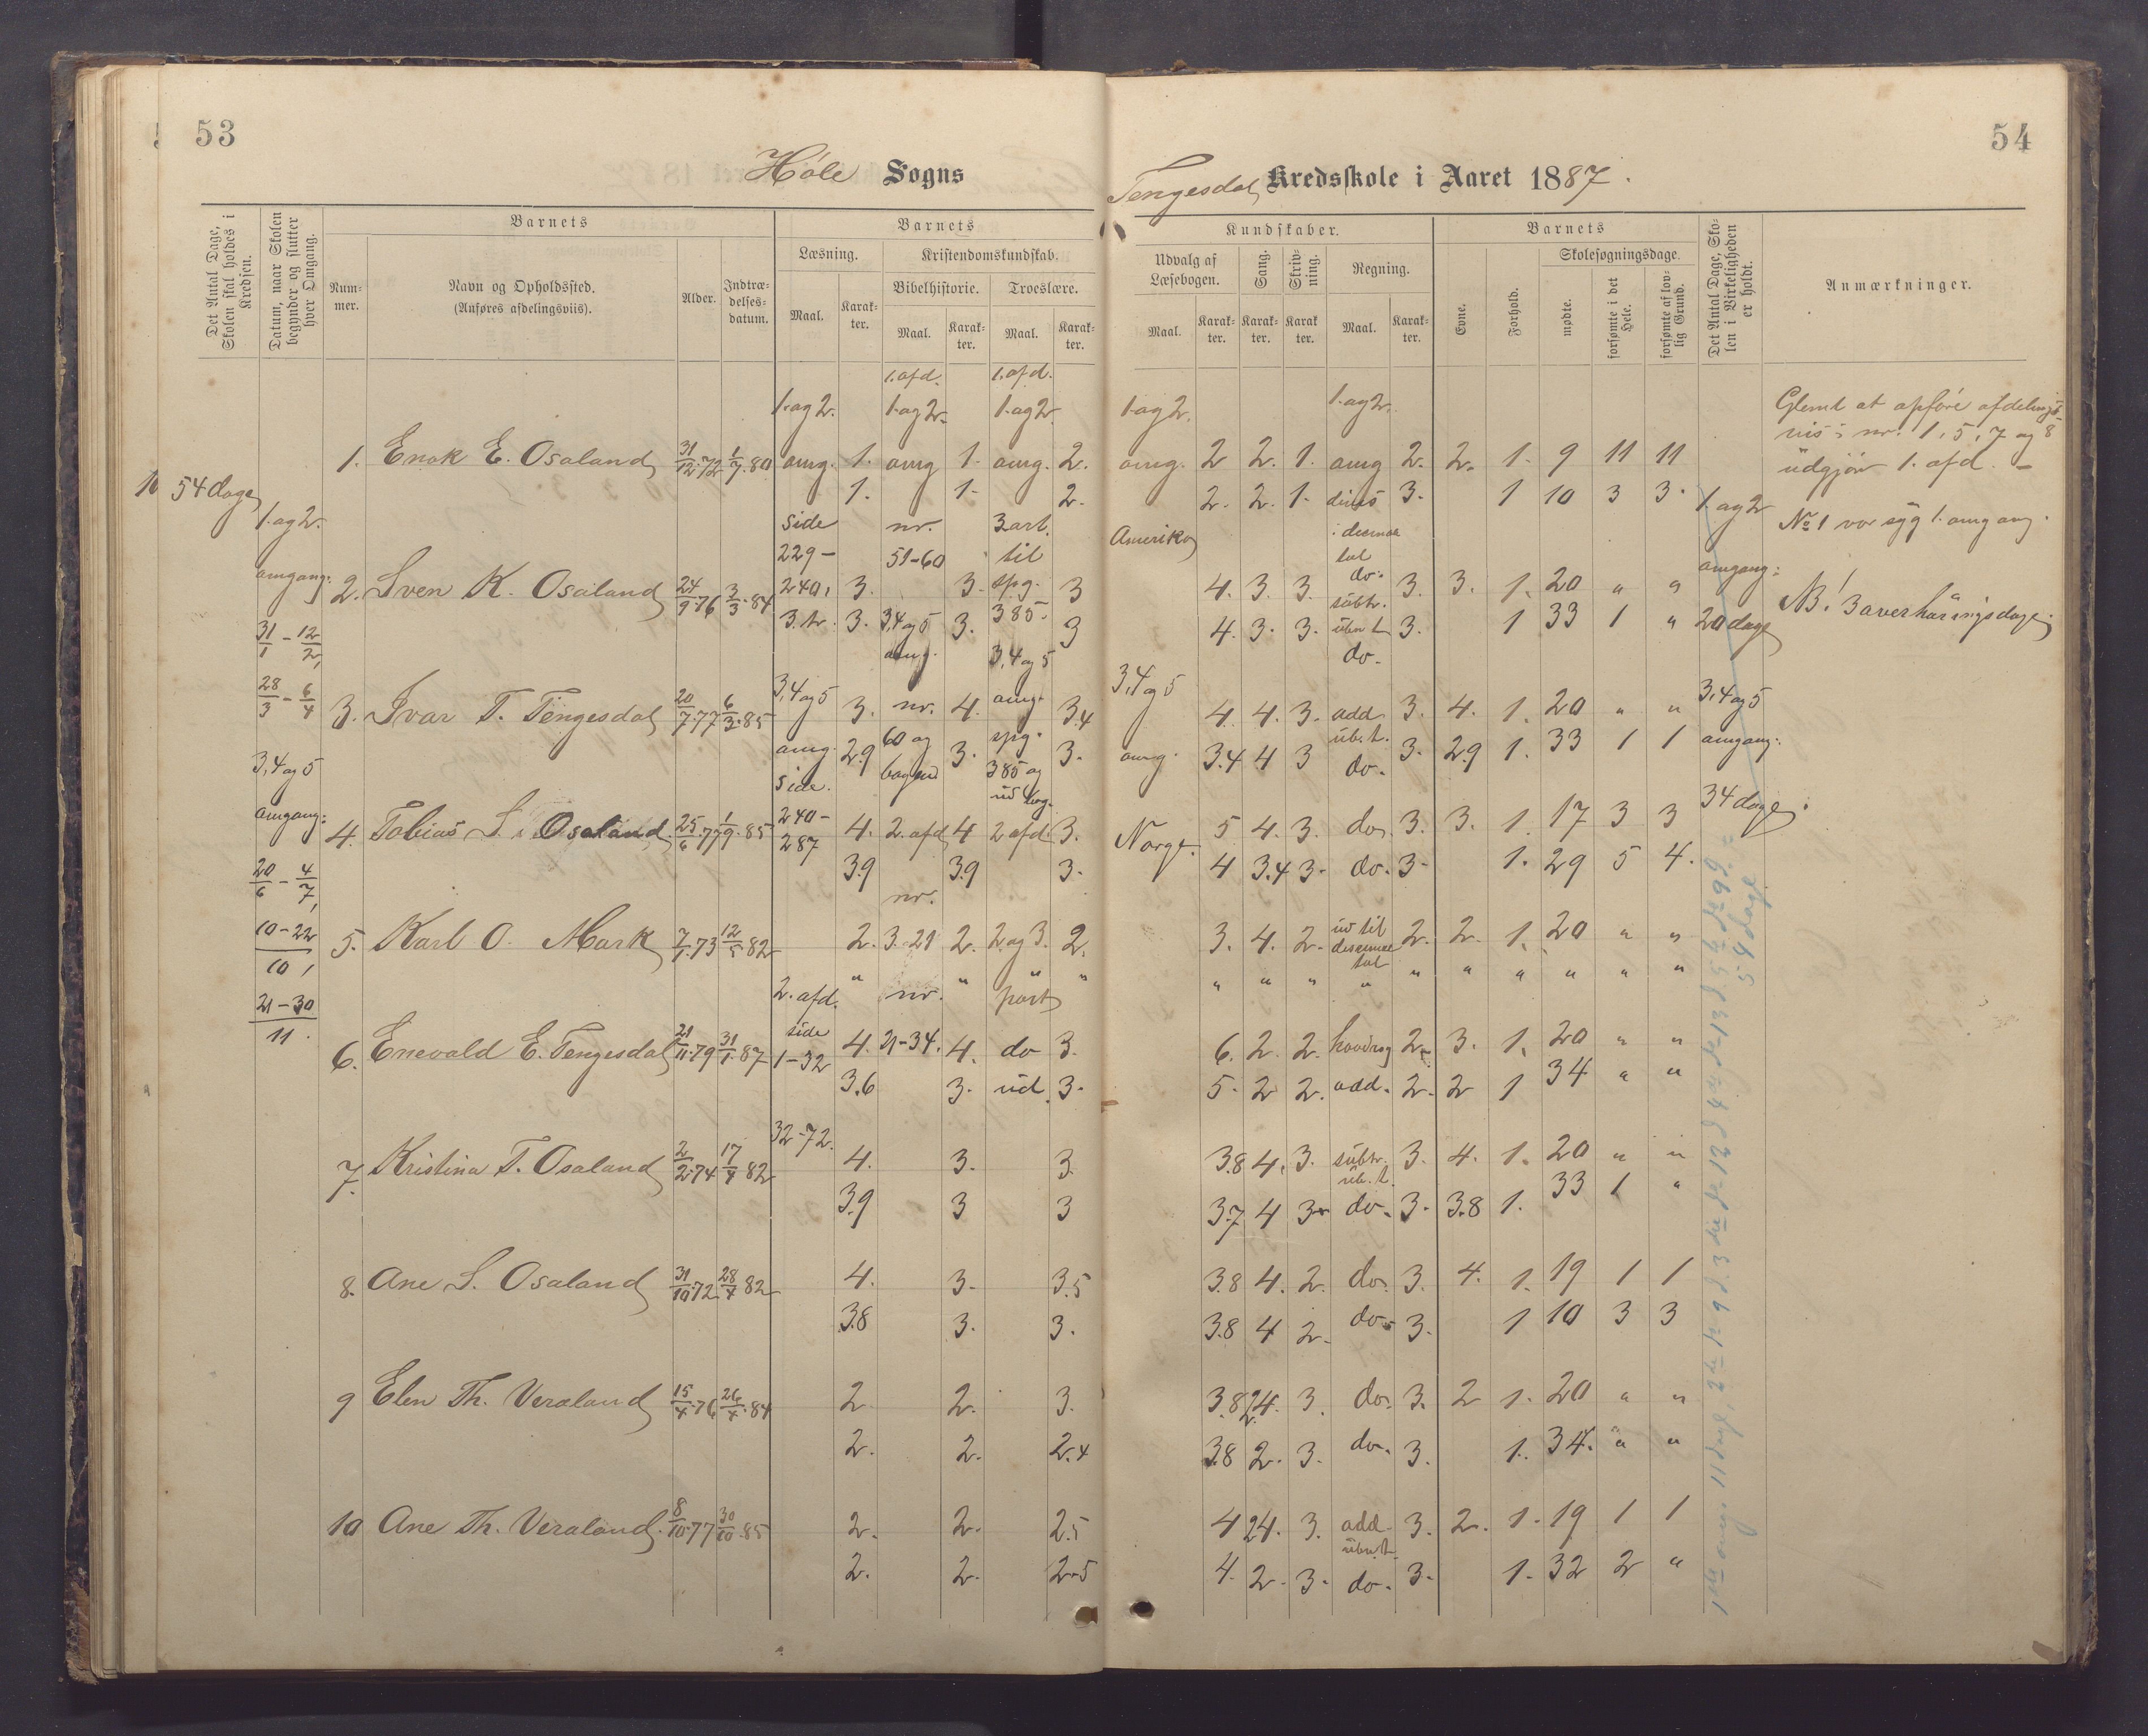 53
54
Høle Sogns
Tengesdal Kredsskole i Aaret 1887.
Det Antal Dage, Skolen skal holdes i Kredsen.
Datum, naar Skolen begynder og slutter hver Omgang.
Barnets
Barnets
Kundskaber.
Barnets
Det Antal Dage, Skolen i Virkeligheden er holdt.
Anmærkninger.
Nummer.
Navn og Opholdssted.
(Anføres afdelingsviis).
Alder.
Indtrædelsesdatum.
Læsning.
Kristendomskundskab.
Bibelhistorie.
Troeslære.
Maal.
Karakter.
Maal.
Karakter.
Maal.
Karakter.
Udvalg af Læsebogen.
Sang.
Skrivning.
Regning.
Maal.
Karakter.
Karakter.
Karakter.
Maal.
Karakter.
Evne.
Forhold.
Skolesøgningsdage.
mødte.
forsømte i det Hele.
forsømte af lovlig Grund.
1. afd. 1. afd.
1. og 2. 1. og 2. 1. og 2. 1. og 2. 1. og 2.
1. Enok E. Osaland 31/12.72 1/7.80 omg. 1. omg 1. omg. 2. omg. 2 2. 1. omg 2. 2. 1. 9 11 11
1. 1. 2. 2. 2. 1. 3. 1 10 3 3.
54 dage
1. og 2.
omgang:
31/1 - 12/2,
28/3 - 6/4
3, 4 og 5
omgang:
20/6 - 4/7,
10-22/10,
21-30/11.
side nr. 3 art. Amerika
229- 51-60 til
2. Sven K. Osaland 24/9.76 3/3.84 240, 3. 3. spg. 3 4. 3. 3. do. subtr. 3. 3. 1. 20 " "
3. tr. 3. 3, 4 og 5 3. 385. 3 4. 3. 3. 3. 1 33 1 "
omg. 3, 4 og 5 do.
3. Ivar T. Tengesdal 20/7.77 6/3.85 3, 4 og 5 3. nr. 4. omg. 3.4 3, 4 og 5 4. 4. 3. add. 3. 4. 1. 20 " "
omg. 2.9 60 og 3. spg. 3. omg. 3.4 4 3 do. 3. 2.9 1. 33 1 1
side. 385 og
4. Tobias S. Osaland 25/6.77 1/9.85 240-287 4. 2. afd 4 2 afd. 3. Norge. 5 4. 3. do. 3. 3. 1. 17 3 3
3.9 3.9 3. 4 3.4 3. do. 3. 1. 29 5 4.
nr.
5. Karl O. Mark 7/1.73 12/5.82 2. 3-21 2. 2 og 3. 2. 3. 4. 2. ud til 2. 2. 1. 20 " "
" " " " " " " " " " " " "
2. afd. nr. part
side
6. Enevald E. Tengesdal 21/11.79 31/1.87 1-32 4. 21-34. 4. do 3. 6. 2. 2. 2. 3. 1. 20 " "
3.6 3. ud. 3. 5. 2 2. add. 2. 2 1 34 " "
32-72.
7. Kristina T. Osaland 2/2.74 17/4.82 4. 3. 3. 3.8 4. 3. subtr. 3. 4. 1. 20 " "
3.9 3 3 3.7 4 3. do. 3. 3.8 1. 33 1 "
8. Ane S. Osaland 31/10.72 28/4.82 4. 3. 3.5 3.8 4. 2. do. 3. 4. 1. 19 1 1
3.8 3. 3. 3.8 4 2. do. 3. 1 10 3 3
9 Elen Th. Veraland 15/4.76 26/4.84 2 2. 3. 3.8 2.4. 3. do. 3. 2 1. 20 " "
2. 2. 2.4 3.8 2. 3. do. 3. 1. 34. " "
10 Ane Th. Veraland. 8/10.77 30/10.85 2. 2. 2.5 4 24. 3. add. 3. 2. 1. 19 1 1
2. 2. 2.5 4. 2. 3. do. 3. 1. 32 2 "
1. og 2
omgang:
20 dage
3, 4 og 5
omgang:
34 dage.
Glemt at opføre afdelingsvis: nr. 1, 5, 7 og 8
udgjør 1. afd. -
No 1 var syg 1. omgang.
NB! 3 overhøringsdage.
54 dage